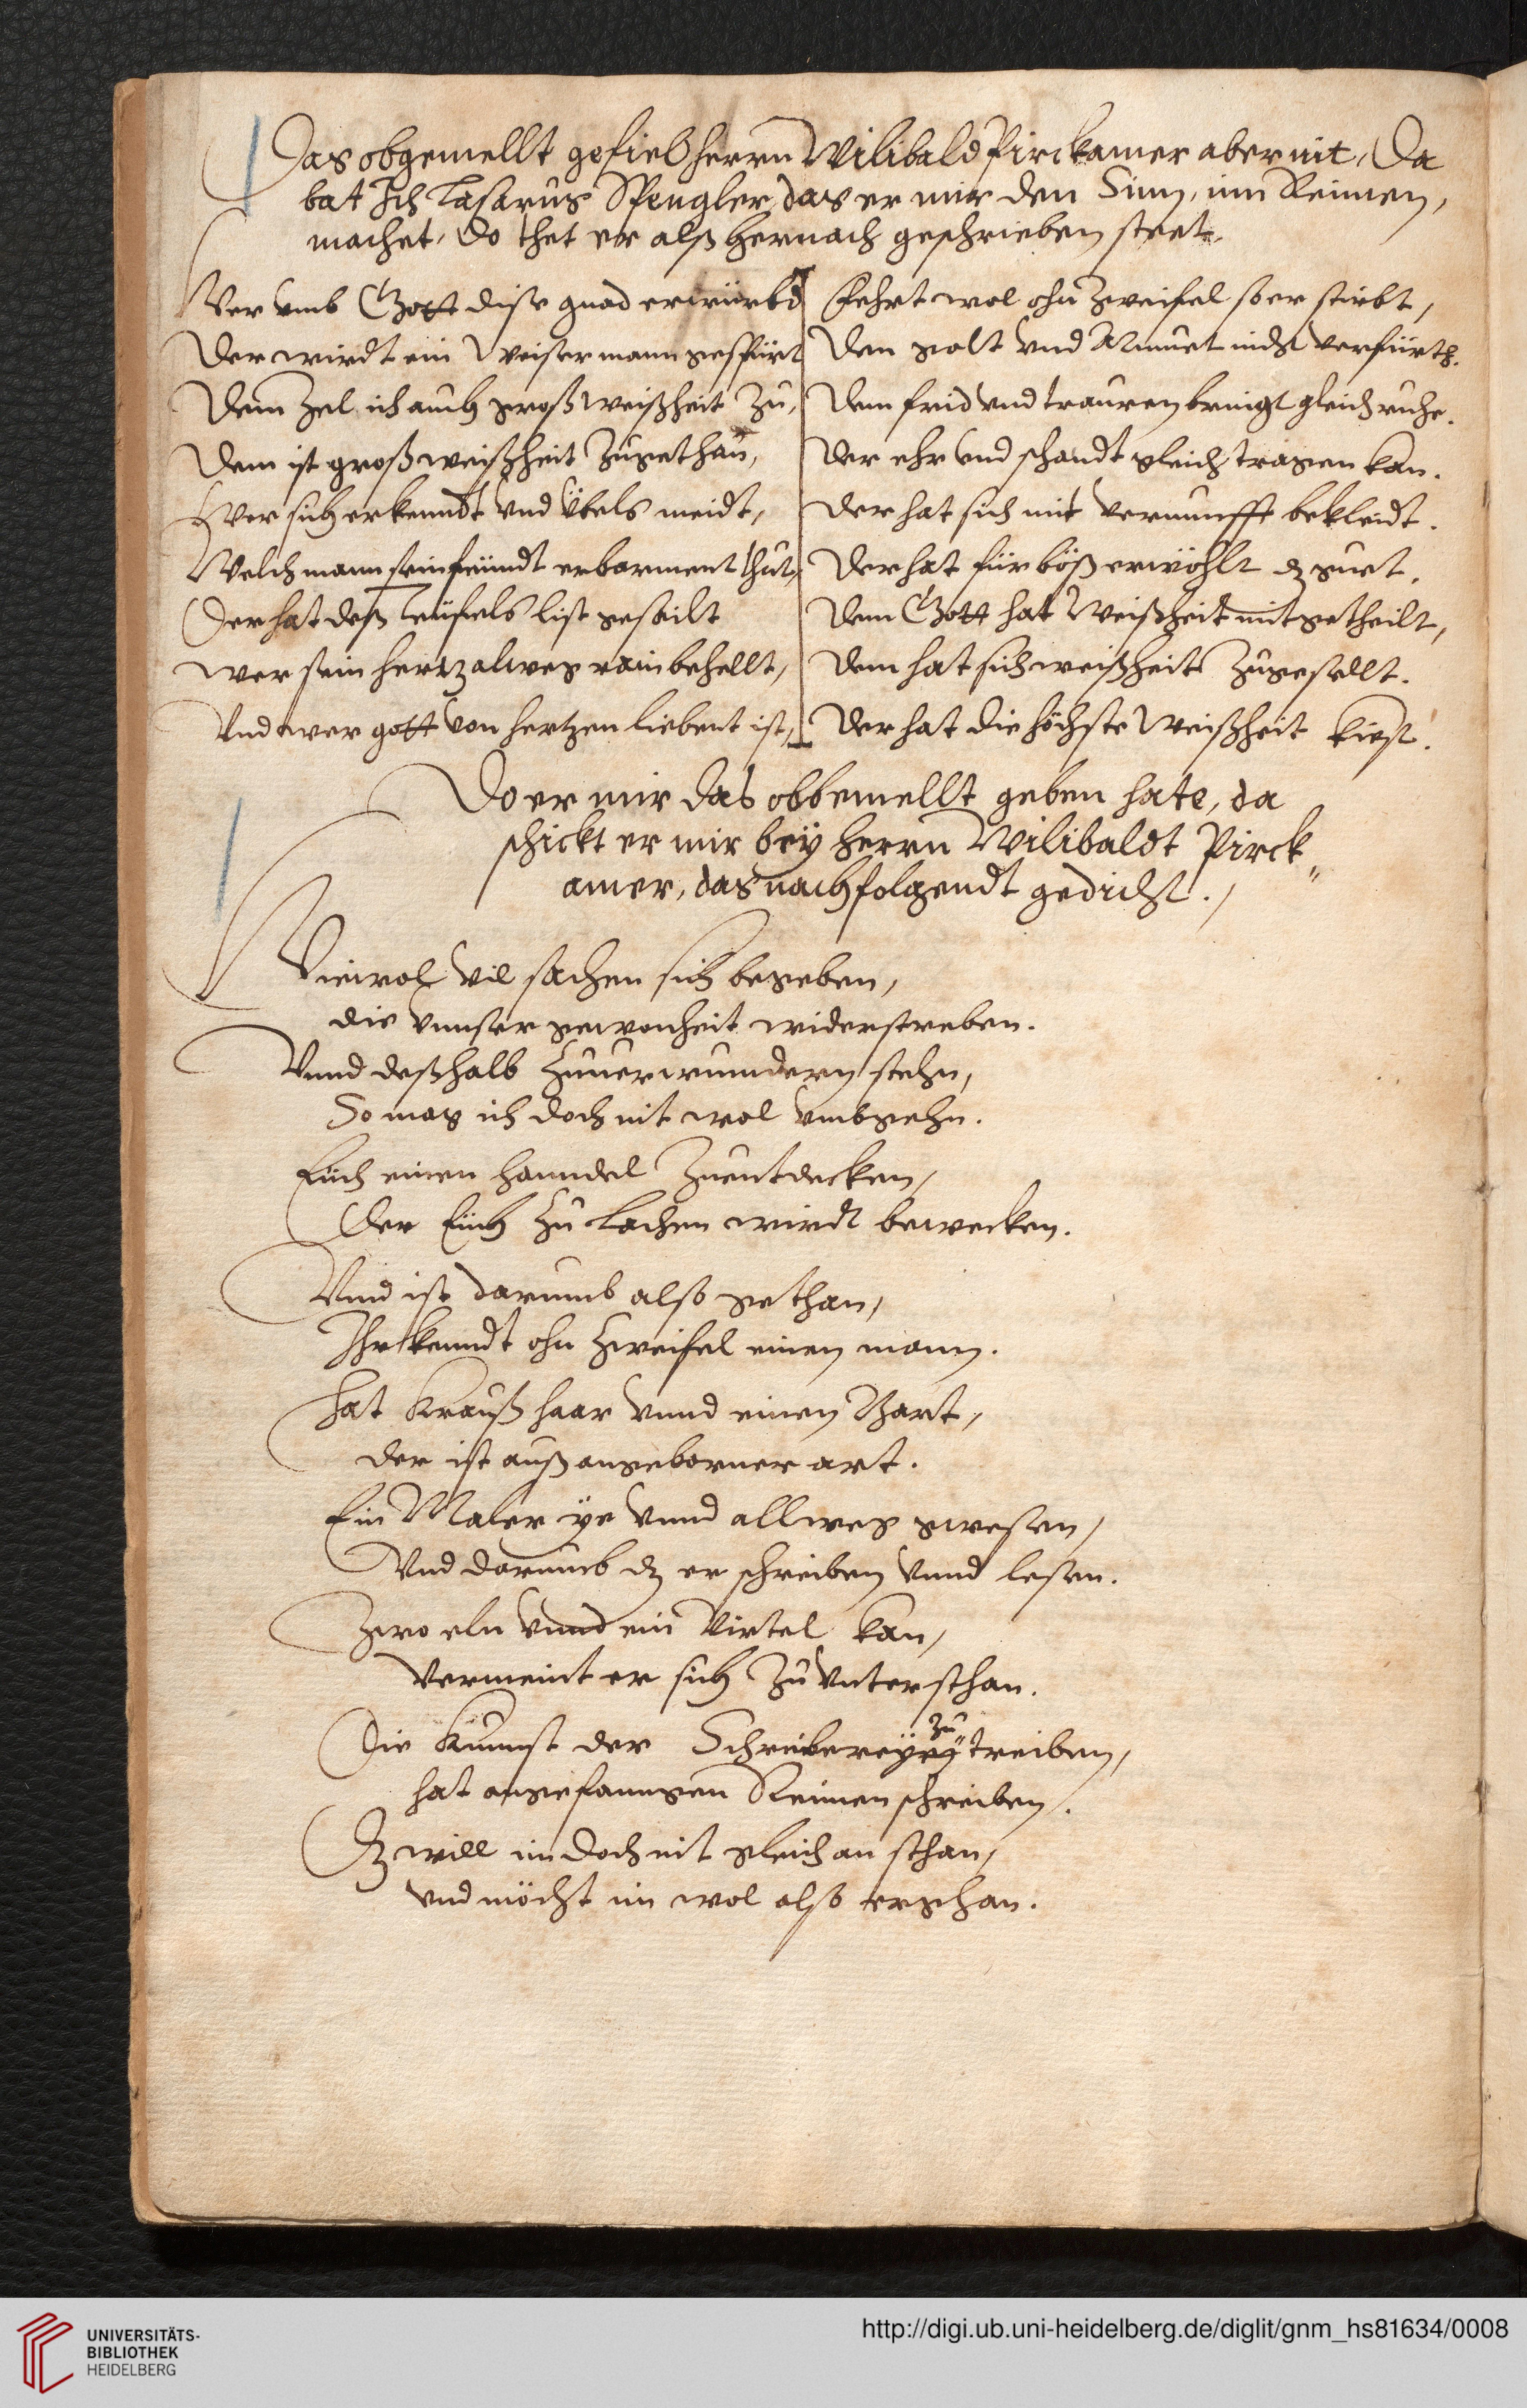 Das obgemellt gefiel herrn Wilibald Pirckamer aber nit, Da
bat Ich Lasarus Spengler, das er mir den Sinn, inn Reimen,
machet, Do thet er alß hernach geschrieben steet.
Wer vmb Gott dise gnad erwürbt
Der wirdt ein Weiser mann gespürt
Dem Zel ich auch groß weißheit Zu,
Dem ist groß weißheit Zugethan,
Wer sich erkenndt vnd Übels meidt,
Welch mann sein feindt erbarment thut,
Der hat deß Teufels list gefeilt
Wer sein hertz alweg rain behellt,
Vnd wer gott von hertzen liebent ist,
Fehrt wol ohn Zweifel so er stirbt,
Den golt vnd Armuet nicht verfürth.
Dem frid vnd trauren bringt gleich ruhe.
Der ehr vnd schandt gleich tragen kan.
Der hat sich mit vernunfft bekleidt.
Der hat für böß erwöhlt dz guet.
Dem Gott hat Weißheit mitgetheilt,
Dem hat sich weißheit Zugesellt.
Der hat die höchste Weißheit kiest.
Do er mir das obbemellt geben hate, da
schickt er mir bey herrn Wilibaldt Pirck„
amer, das nachfolgendt gedicht.
Wiewol vil sachen sich begeben,
die vnnser gewonheit widerstreben.
Vnnd deßhalb Zuuerwundern stehn,
So mag ich doch nit wol vmbgehn.
Euch einen hanndel Zuentdecken,
Der Euch Zu lachen wirdt bewecken.
Vnd ist darumb also gethan,
Ihr kenndt ohn Zweifel einen mann.
Hat Krauß haar vnnd einen Bart,
der ist auß angeborner art.
Ein Maler ye vnnd allweg gwesen,
Vnd darumb dz er schreiben vnnd lesen.
Zwo eln vnnd ein Virtel kan,
Vermeint er sich Zu vnterstehan.
Die Kunnst der Schreibereÿ zu treiben,
hat angefanngen Reimen schreiben.
Dz will im doch nit gleich an stehan,
vnd möcht im wol also ergehan.
UNIVERSITÄTS-
BIBLIOTHEK
HEIDELBERG
http://digi.ub.uni-heidelberg.de/diglit/gnm_hs81634/0008